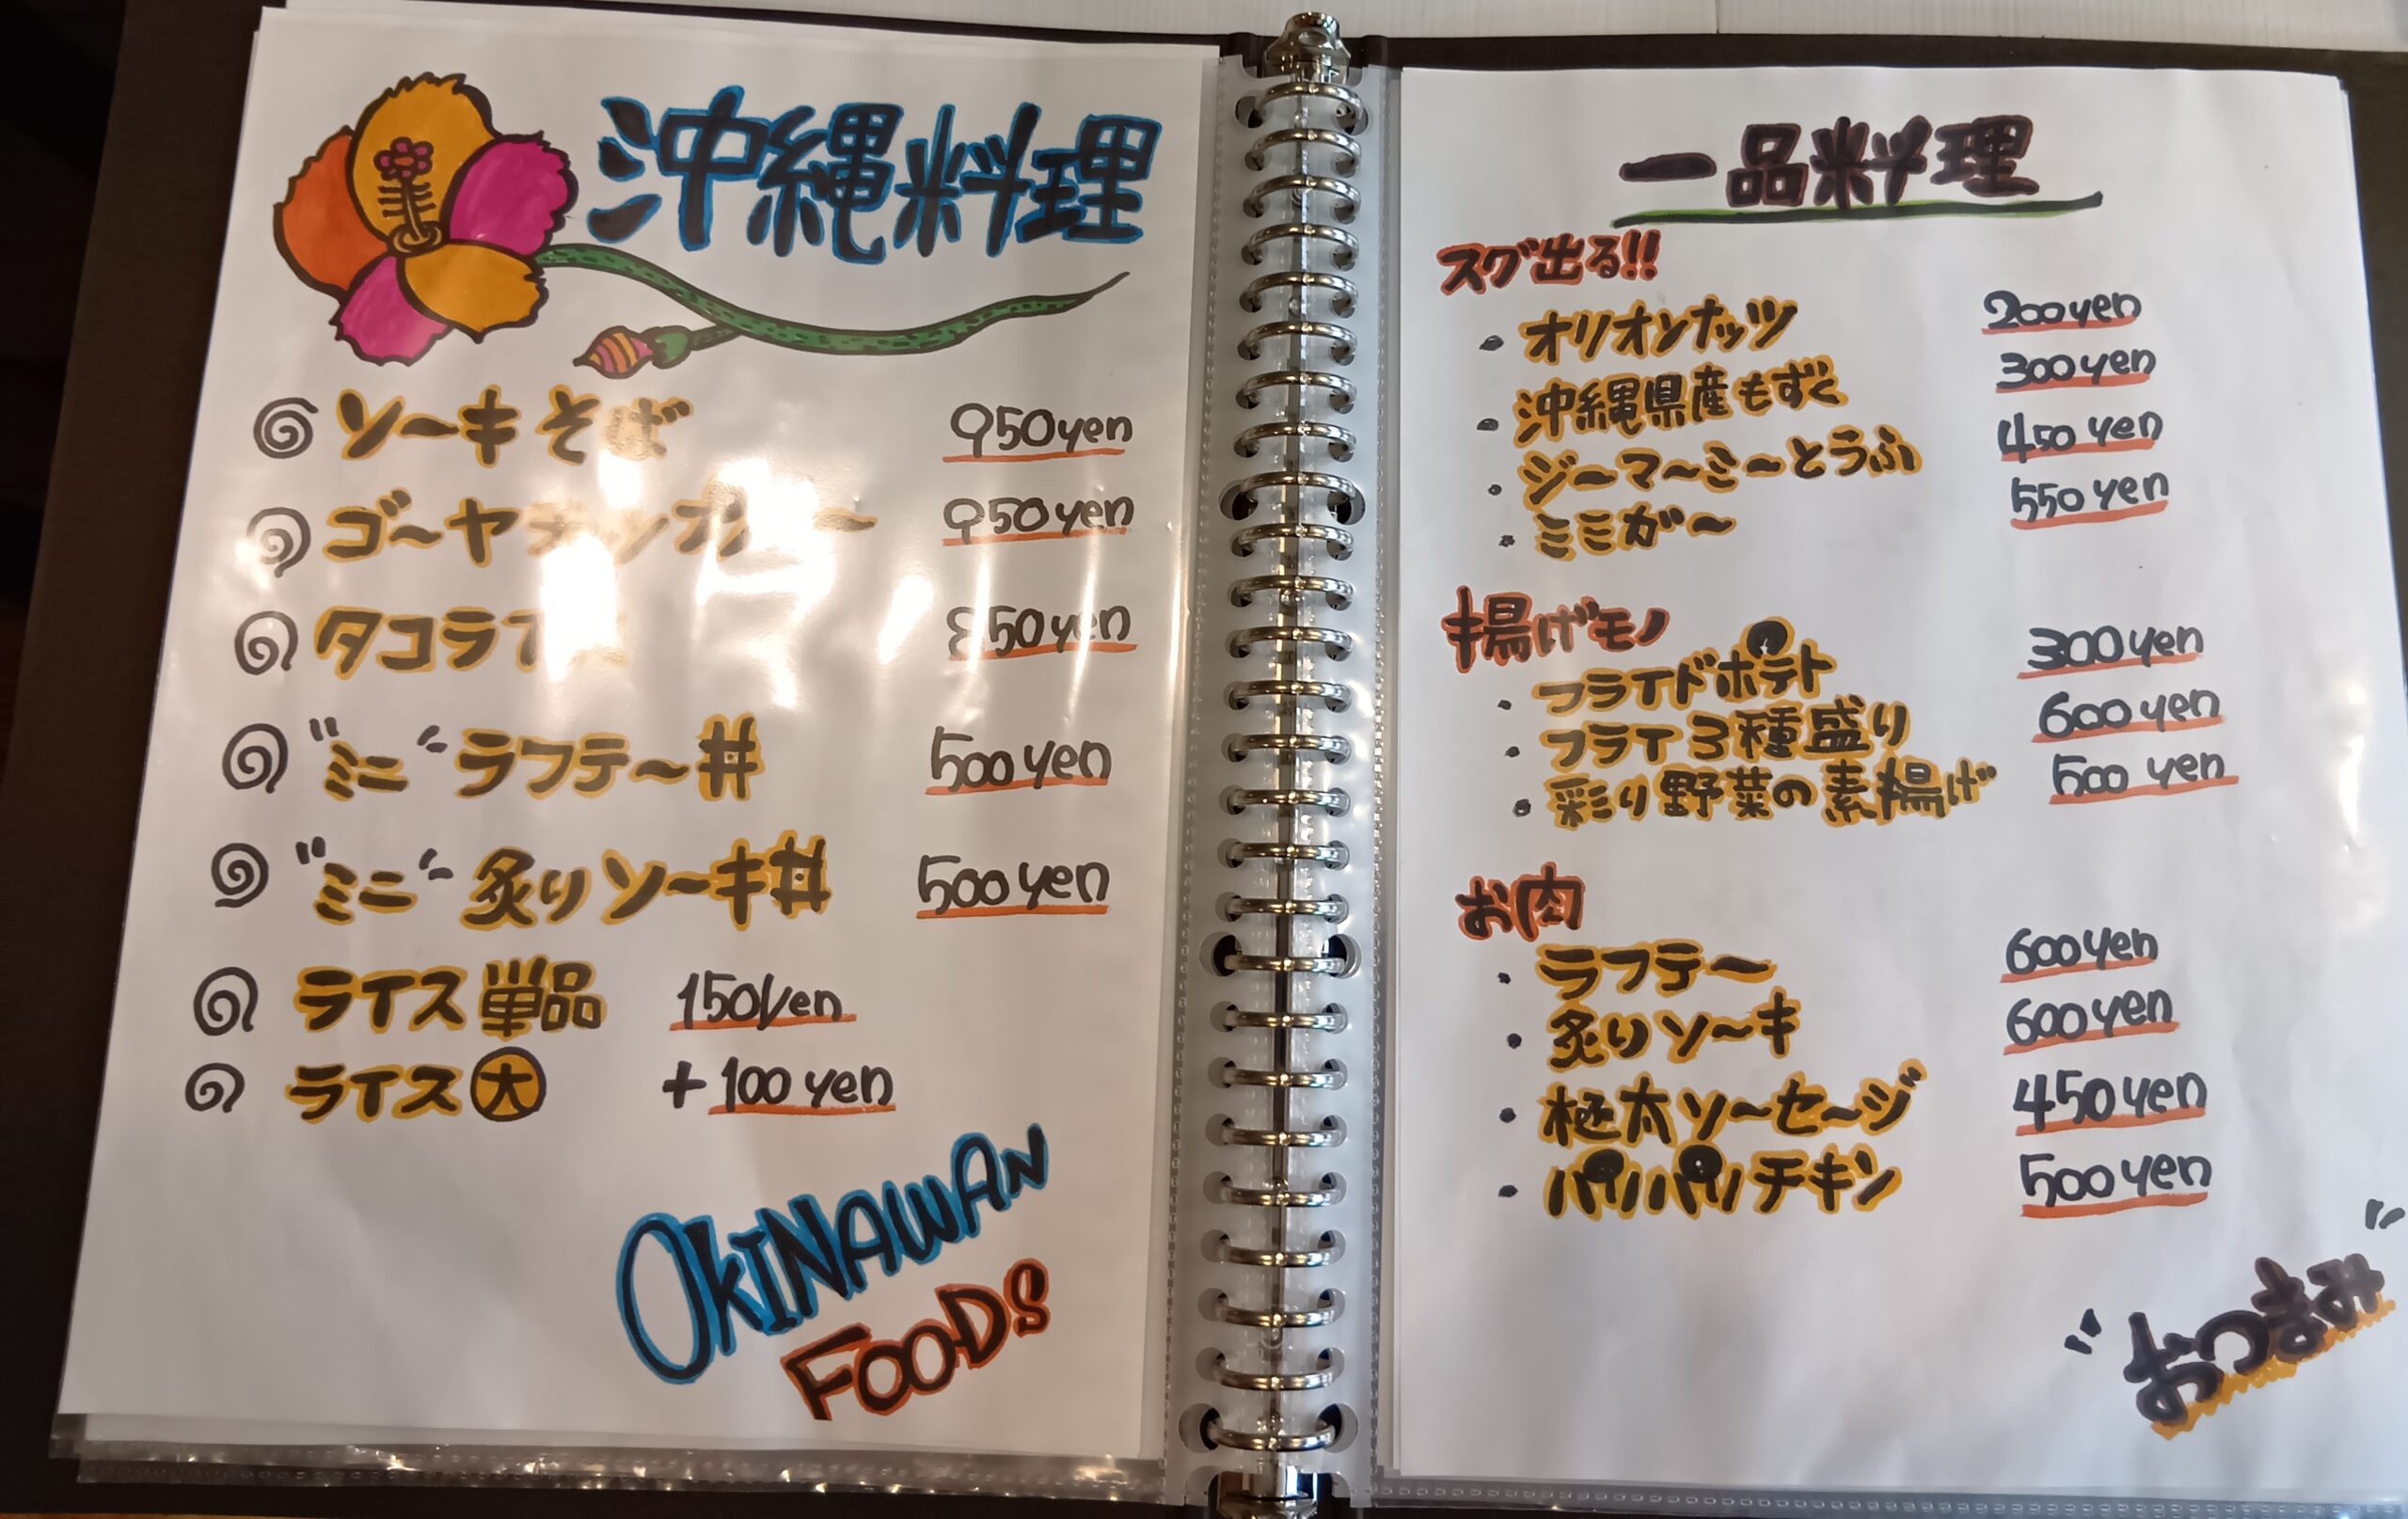 沖縄料理
ソーキそば 950yen
ゴーヤチャンプルー 950yen
タコライス 850yen
"ミニ"ラフテー丼 500yen
"ミニ"炙りソーキ丼 500yen
ライス単品 150yen
ライス大 +100yen
OKINAWAN
FOODS
一品料理
スグ出る!!
・オリオンナッツ 200yen
・沖縄県産もずく 300yen
・ジーマーミーとうふ 450yen
・ミミガー 550yen
揚げモノ
・フライドポテト 300yen
・フライ3種盛り 600yen
・彩り野菜の素揚げ 500yen
お肉
・ラフテー 600yen
・炙りソーキ 600yen
・極太ソーセージ 450yen
・パリパリチキン 500yen
"おつまみ"